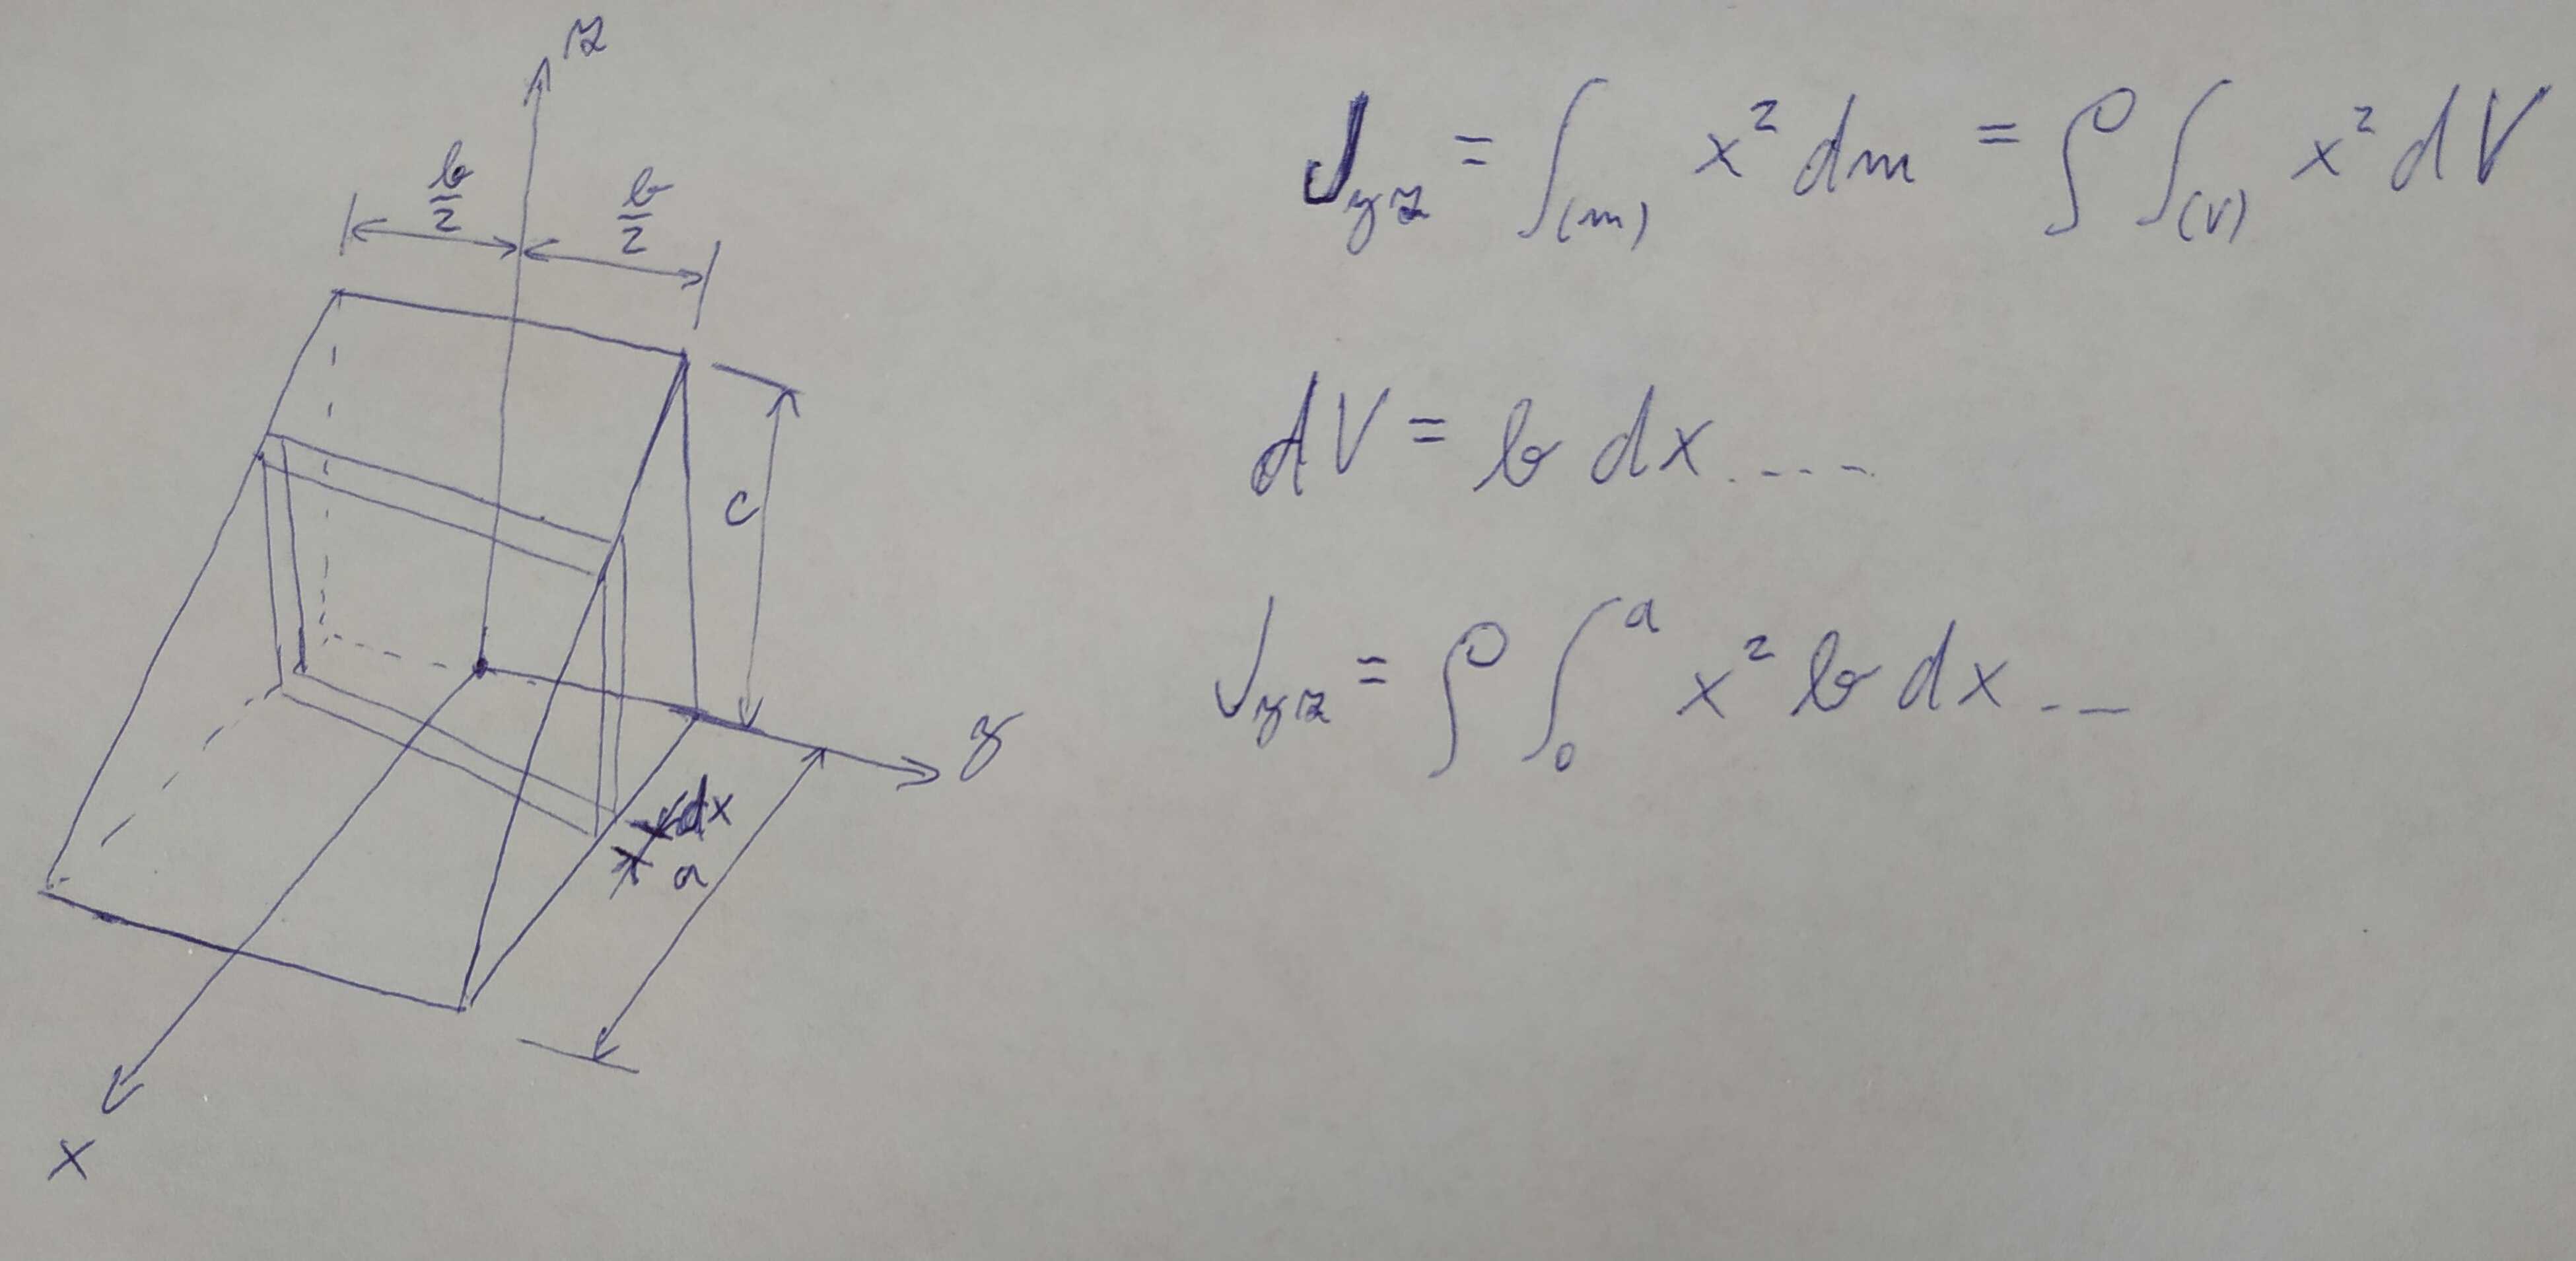 z
b/2 b/2
c
y
dx
a
x
J_yz = ∫_(m) x² dm = ρ ∫_(V) x² dV
dV = b dx ....
J_yz = ρ ∫_0^a x² b dx ...